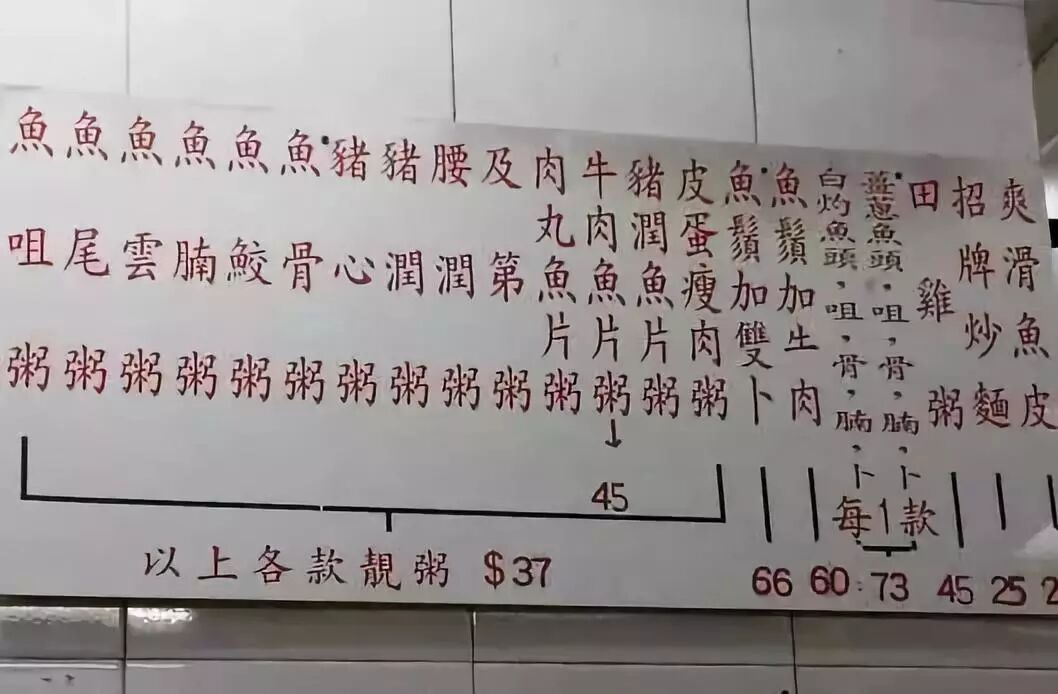 魚咀粥
魚尾粥
魚雲粥
魚腩粥
魚鮫粥
魚骨粥
豬心粥
豬潤粥
腰潤粥
及第粥
肉丸魚片粥
牛肉魚片粥
45
豬潤魚片粥
皮蛋瘦肉粥
以上各款靚粥 $37
魚鬚加雙卜
66
魚鬚加生肉
60
白灼魚頭，咀，骨，腩，卜
薑蔥魚頭，咀，骨，腩，卜
每1款
73
田雞粥
45
招牌炒麵
25
爽滑魚皮